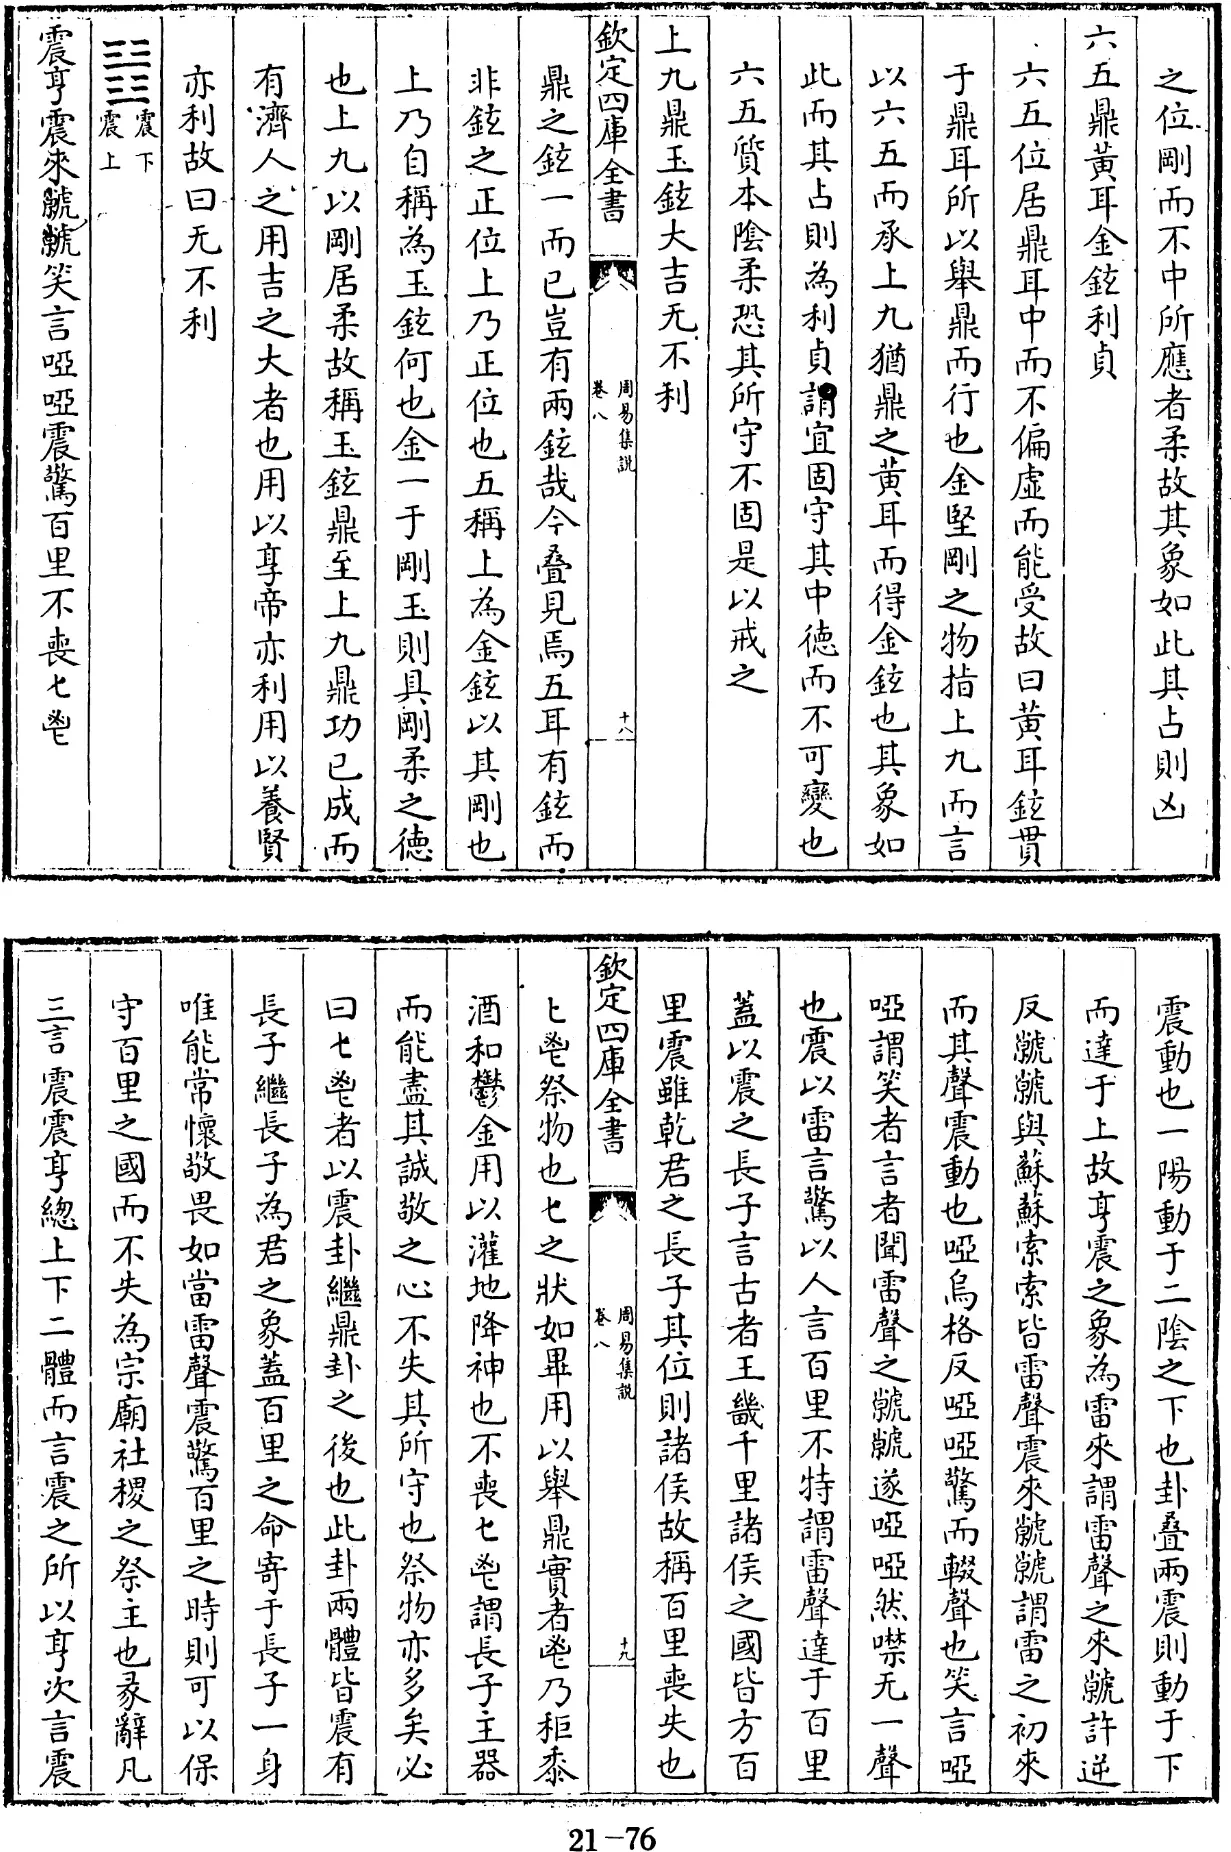 之位剛而不中所應者柔故其象如此其占則凶
六五鼎黃耳金鉉利貞
六五位居鼎耳中而不偏虛而能受故曰黃耳鉉貫
于鼎耳所以舉鼎而行也金堅剛之物指上九而言
以六五而承上九猶鼎之黃耳而得金鉉也其象如
此而其占則為利貞謂宜固守其中德而不可變也
六五質本陰柔恐其所守不固是以戒之
上九鼎玉鉉大吉无不利
欽定四庫全書
周易集說
卷八
十八
鼎之鉉一而已豈有兩鉉哉今疊見焉五耳有鉉而
非鉉之正位上乃正位也五稱上為金鉉以其剛也
上乃自稱為玉鉉何也金一于剛玉則具剛柔之德
也上九以剛居柔故稱玉鉉鼎至上九鼎功已成而
有濟人之用吉之大者也用以享帝亦利用以養賢
亦利故曰无不利
䷲
震下
震上
震亨震來虩虩笑言啞啞震驚百里不喪匕鬯
震動也一陽動于二陰之下也卦疊兩震則動于下
而達于上故亨震之象為雷來謂雷聲之來虩許逆
反虩虩與蘇蘇索索皆雷聲震來虩虩謂雷之初來
而其聲震動也啞烏格反啞啞驚而輟聲也笑言啞
啞謂笑者言者聞雷聲之虩虩遂啞啞然噤无一聲
也震以雷言驚以人言百里不特謂雷聲達于百里
蓋以震之長子言古者王畿千里諸侯之國皆方百
里震雖乾君之長子其位則諸侯故稱百里喪失也
欽定四庫全書
周易集說
卷八
十九
匕鬯祭物也匕之狀如畢用以舉鼎實者鬯乃秬黍
酒和鬱金用以灌地降神也不喪匕鬯謂長子主器
而能盡其誠敬之心不失其所守也祭物亦多矣必
曰匕鬯者以震卦繼鼎卦之後也此卦兩體皆震有
長子繼長子為君之象蓋百里之命寄于長子一身
唯能常懷敬畏如當雷聲震驚百里之時則可以保
守百里之國而不失為宗廟社稷之祭主也彖辭凡
三言震震亨總上下二體而言震之所以亨次言震
21-76